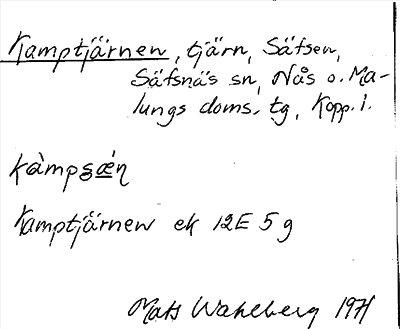 Kamptjärnen, tjärn, Säfsen,
Säfsnäs sn, Nås o. Ma-
lungs doms. tg, Kopp. l.
kàmpsǽn
Kamptjärnen ek 12E 5g
Mats Wahlberg 1971